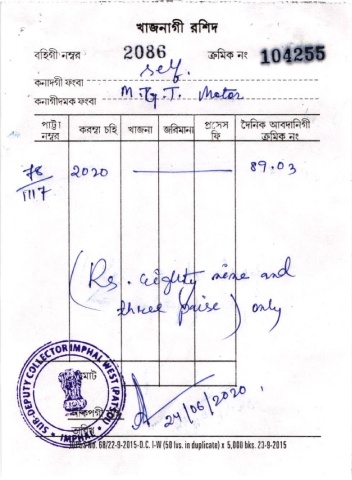 খাজনাগী রশিদ
বহিগী নম্বর 2086 ক্রমিক নং 104255
কনাদগী ফংবা self.
কনাগীদমক ফংবা M.G.T. Motor
পাট্টা নম্বর করম্বা চহি খাজনা জরিমানা প্রসেস ফি দৈনিক আবদানিগী ক্রমিক নং
78/1117 2020 89.03
(Rs. eighty nine and
three paise) only
SUB-DEPUTY COLLECTOR IMPHAL WEST (PATSOI) IMPHAL
24/06/2020.
No. 68/22-9-2015-D.C. I-W (50 lvs. in duplicate) x 5,000 bks. 23-9-2015